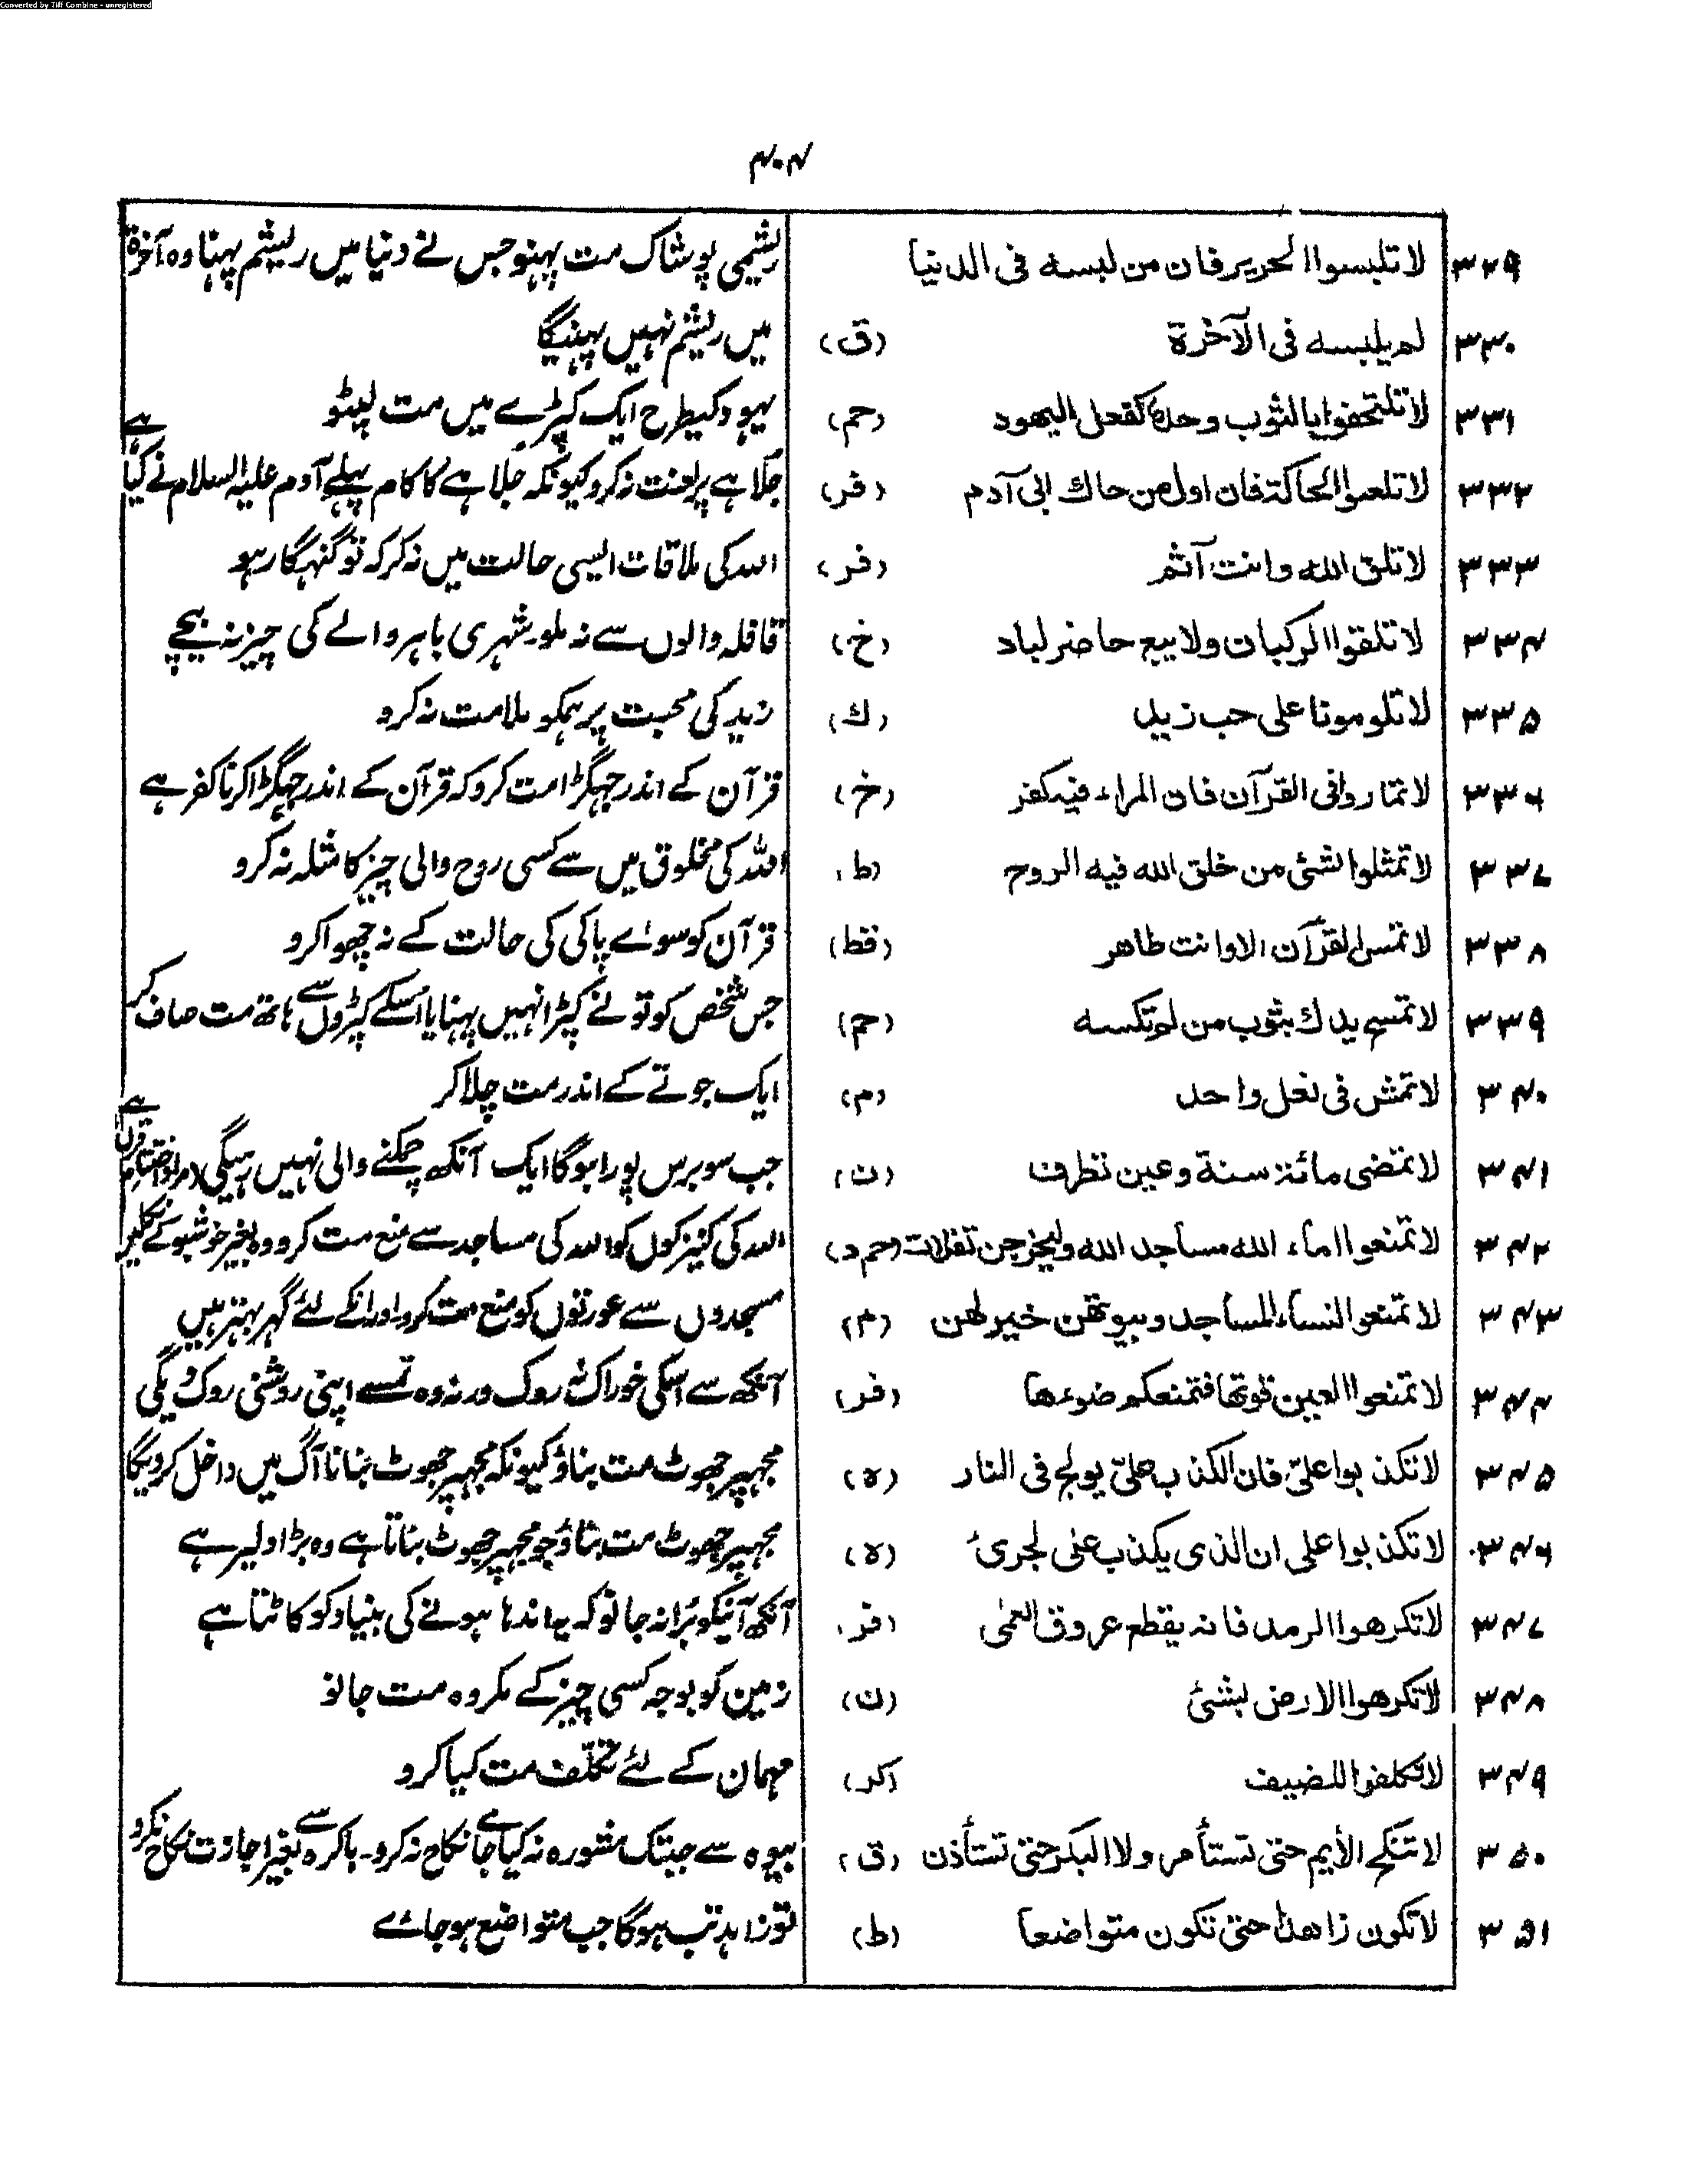 Converted by Tiff Combine - unregistered
۴۰۴
۳۲۹ لا تلبسوا الحرير فان من لبسه فى الدنيا ریشمی پوشاک مت پہنو جس نے دنیا میں ریشم پہنا وہ آخرۃ
۳۳۰ لم يلبسه فى الآخرة (ق) میں ریشم نہیں پہنیگا
۳۳۱ لا تلتحفوا بالثوب وحدہ كفعل اليهود (حم) یہود کیطرح ایک کپڑے میں مت لپٹو
۳۳۲ لا تلعنوا الحاكة فان اول من حاك ابى آدم (فر) جلاہے پر لعنت نہ کرو کیونکہ جلاہے کا کام پہلے آدم علیہ السلام نے کیا ہے
۳۳۳ لا تلق الله وانت آثم (فر) اللہ کی ملاقات ایسی حالت میں نہ کر کہ تو گنہگار ہو
۳۳۴ لا تلقوا الركبان ولا يبع حاضر لباد (خ) قافلہ والوں سے نہ ملو۔ شہری باہر والے کی چیز نہ بیچے
۳۳۵ لا تلومونا على حب زيد (ك) زید کی محبت پر ہمکو ملامت نہ کرو
۳۳۶ لا تماروا فى القرآن فان المراء فيه كفر (خ) قرآن کے اندر جہگڑا مت کرو کہ قرآن کے اندر جہگڑا کرنا کفر ہے
۳۳۷ لا تمثلوا بشئ من خلق الله فيه الروح (ط) اللہ کی مخلوق میں سے کسی روح والی چیز کا مثلہ نہ کرو
۳۳۸ لا تمس القرآن الا وانت طاهر (قط) قرآن کو سوائے پاکی کی حالت کے نہ چھوا کرو
۳۳۹ لا تمسح يدك بثوب من لم تكسه (حم) جس شخص کو تو نے کپڑا نہیں پہنایا اسکے کپڑوں سے ہاتھ مت صاف کر
۳۴۰ لا تمش فى نعل واحد (م) ایک جوتے کے اندر مت چلا کر
۳۴۱ لا تمضى مائة سنة وعين تطرف (ن) جب سو برس پورا ہوگا ایک آنکھ جھپکنے والی نہیں رہیگی
۳۴۲ لا تمنعوا اماء الله مساجد الله وليخرجن تفلات (حم د) اللہ کی کنیزکوں کو اللہ کی مساجد سے منع مت کرو وہ بغیر خوشبو کے نکلیں
۳۴۳ لا تمنعوا النساء المساجد وبيوتهن خير لهن (م) مسجدوں سے عورتوں کو منع مت کرو اور انکے لئے گہر بہتر ہیں
۳۴۴ لا تمنعوا العين قوتها فتمنعكم ضوءها (فر) آنکھ سے اسکی خوراک نہ روک ورنہ وہ تمسے اپنی روشنی روک دیگی
۳۴۵ لا تكذبوا علىّ فان الكذب علىّ يولج فى النار (ہ) مجہپر جھوٹ مت بناؤ کیونکہ مجہپر جھوٹ بنانا آگ میں داخل کر دیگا
۳۴۶ لا تكذبوا على ان الذى يكذب على لجرئ (ہ) مجہپر جھوٹ مت بناؤ جو مجہپر جھوٹ بناتا ہے وہ بڑا دلیر ہے
۳۴۷ لا تكرهوا الرمد فانه يقطع عروق العمى (فر) آنکھ آنیکو برا نہ جانو کہ یہ اندہا ہونے کی بنیاد کو کاٹتا ہے
۳۴۸ لا تكرهوا الارض بشئ (ن) زمین کو بوجہ کسی چیز کے مکروہ مت جانو
۳۴۹ لا تكلفوا للضيف (كر) مہمان کے لئے تکلّف مت کیا کرو
۳۵۰ لا تنكح الأيم حتى تستأمر ولا البكر حتى تستأذن (ق) بیوہ سے جبتک مشورہ نہ کیا جائے نکاح نہ کرو۔ باکرہ سے بغیر اجازت نکاح نکرو
۳۵۱ لا تكون زاهدا حتى تكون متواضعا (ط) تو زاہد تب ہوگا جب متواضع ہو جائے